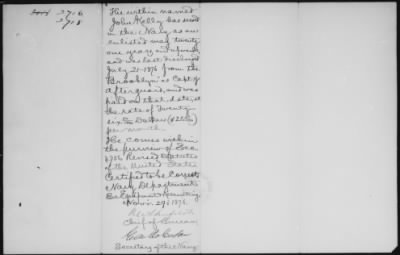 2706
2708
The within named
John Kelly has served
in the Navy as an
enlisted man twenty
one years and upwards
and was last discharged
July 21 1876 from the
"Brooklyn" as Capt. of
Afterguard, and was
paid on that date, at
the rate of Twenty
six Dollars
per month.
He comes within
the purview of Sec.
4756 Revised Statutes
of the United States
Certified to be Correct,
Navy Department
Bu Equipment Recruiting
Nov. 29, 1876.
Chief of Bureau
Secretary of the Navy